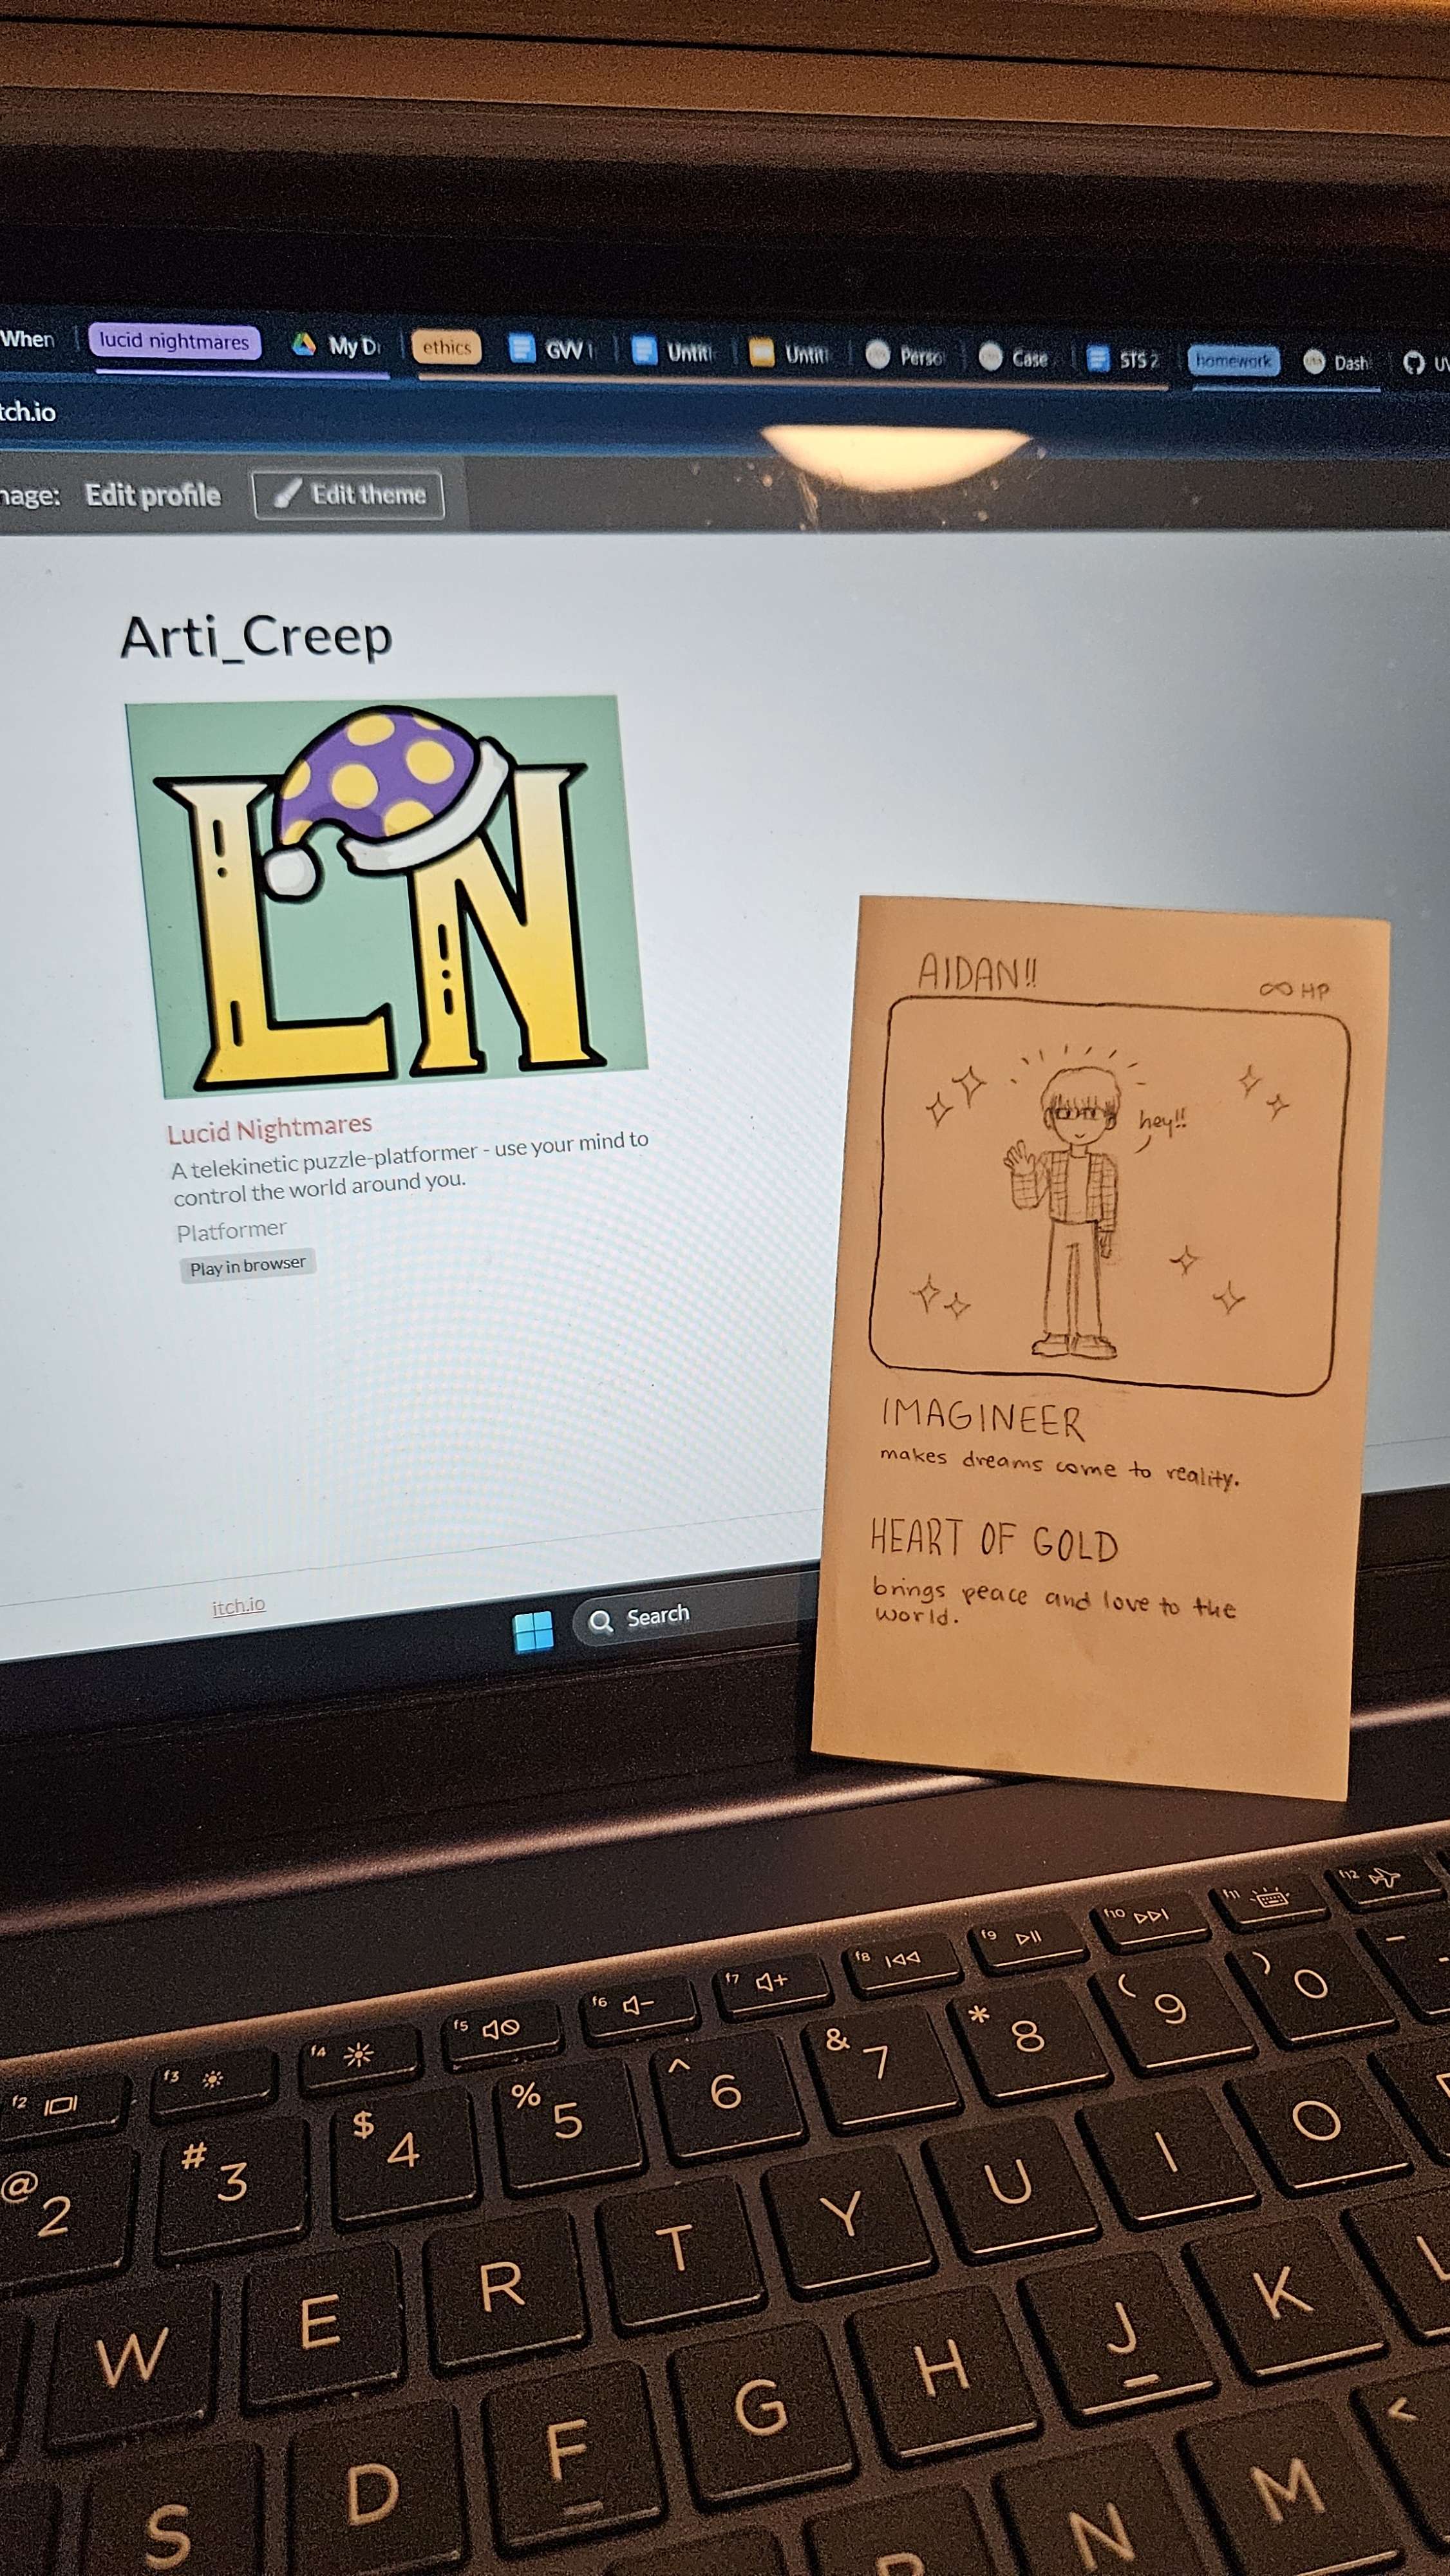 When
lucid nightmares
My Di
ethics
GVV
Untitl
Untitl
Perso
Case
STS 2
homework
Dash
tch.io
nage:
Edit profile
Edit theme
Arti_Creep
LN
Lucid Nightmares
A telekinetic puzzle-platformer - use your mind to
control the world around you.
Platformer
Play in browser
itch.io
Search
AIDAN!!
∞ HP
hey!!
IMAGINEER
makes dreams come to reality.
HEART OF GOLD
brings peace and love to the
world.
f2 f3 f4 f5 f6 f7 f8 f9 f10 f11 f12
@ 2 # 3 $ 4 % 5 ^ 6 & 7 * 8 ( 9 ) 0 -
W E R T Y U I O
S D F G H J K L
N M <